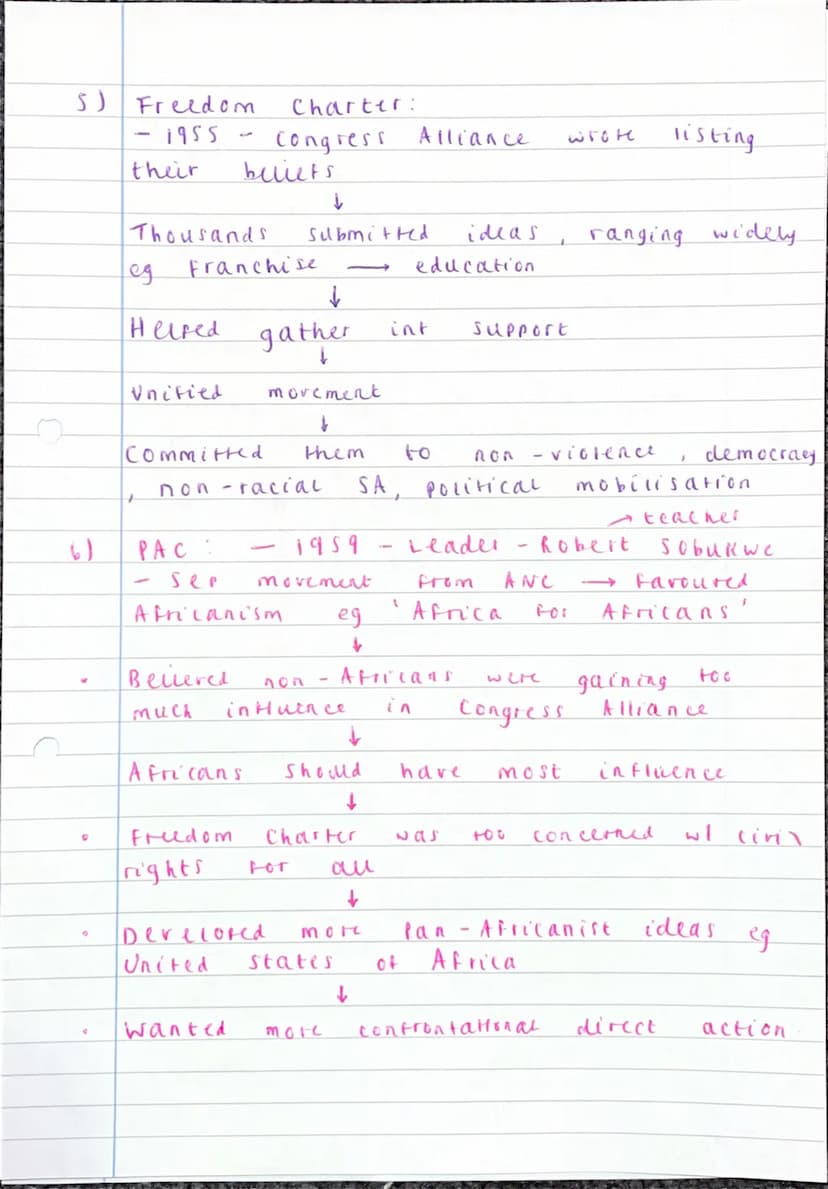 5) Freedom Charter:
- 1955 - Congress Alliance wrote listing
their beliefs
↓
Thousands submitted ideas, ranging widely
eg Franchise → education
↓
Helped gather int support
↓
Unified movement
↓
Committed them to non-violence, democracy
, non-racial SA, political mobilisation
→ teacher
6) PAC: - 1959 - Leader - Robert Sobukwe
- Sep movement from ANC → Favoured
Africanism eg 'Africa for Africans'
↓
• Believed non-Africans were gaining too
much influence in Congress Alliance
↓
Africans should have most influence
↓
• Freedom Charter was too concerned w/ civil
rights for all
↓
• Developed more Pan-Africanist ideas eg
United States of Africa
↓
• Wanted more confrontational direct action